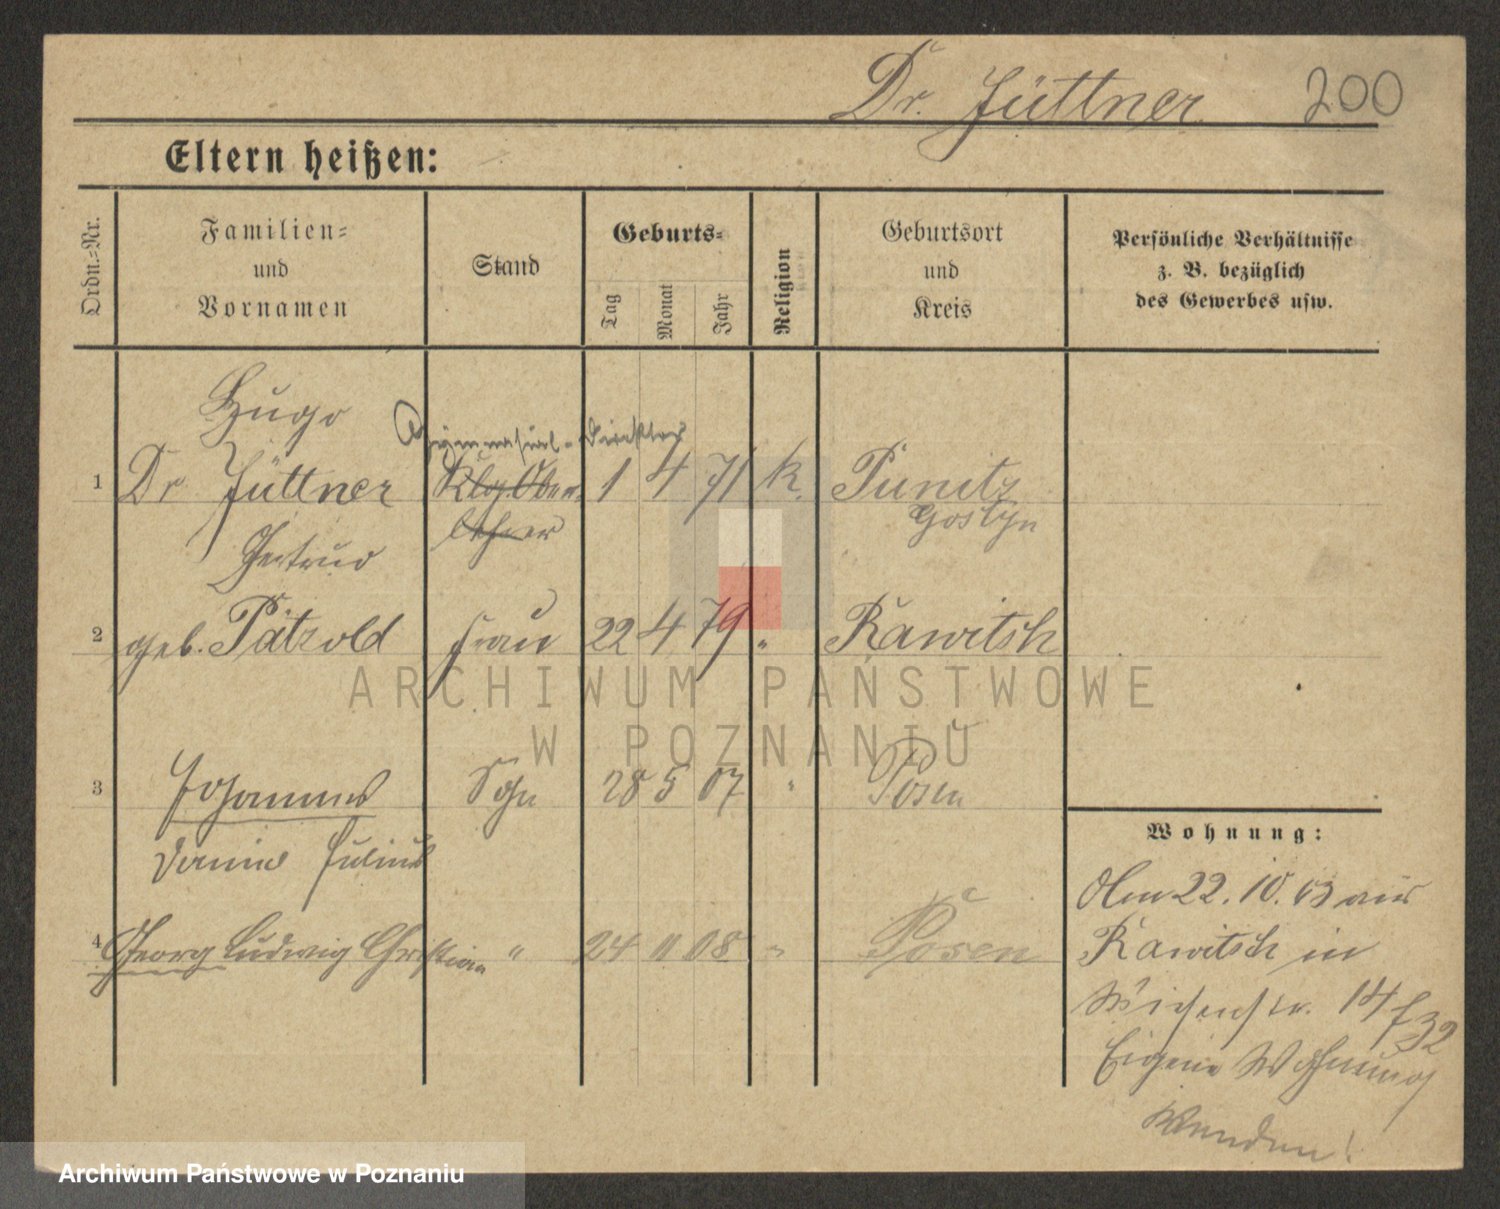 Dr. Jüttner 200
Eltern heißen:
Ordn.=Nr.
Familien=
und
Vornamen
Stand
Geburts=
Tag
Monat
Jahr
Religion
Geburtsort
und
Kreis
Persönliche Verhältnisse
z. B. bezüglich
des Gewerbes usw.
Hugo
Gymnasial-Direktor
1 Dr Jüttner Klg. Ober- 1 4 71 k. Punitz
lehrer Gostyn
Gertrud
2 geb. Pätzold Frau 22 4 79 " Rawitsch
3 Johannes Sohn 28 5 07 " Posen
Daniel Julius
4 Georg Ludwig Christian " 24 11 08 " Posen
Wohnung:
Am 22. 10. 03 aus
Rawitsch in
14
Eigene Wohnung
Wenden!
ARCHIWUM PAŃSTWOWE
W POZNANIU
Archiwum Państwowe w Poznaniu